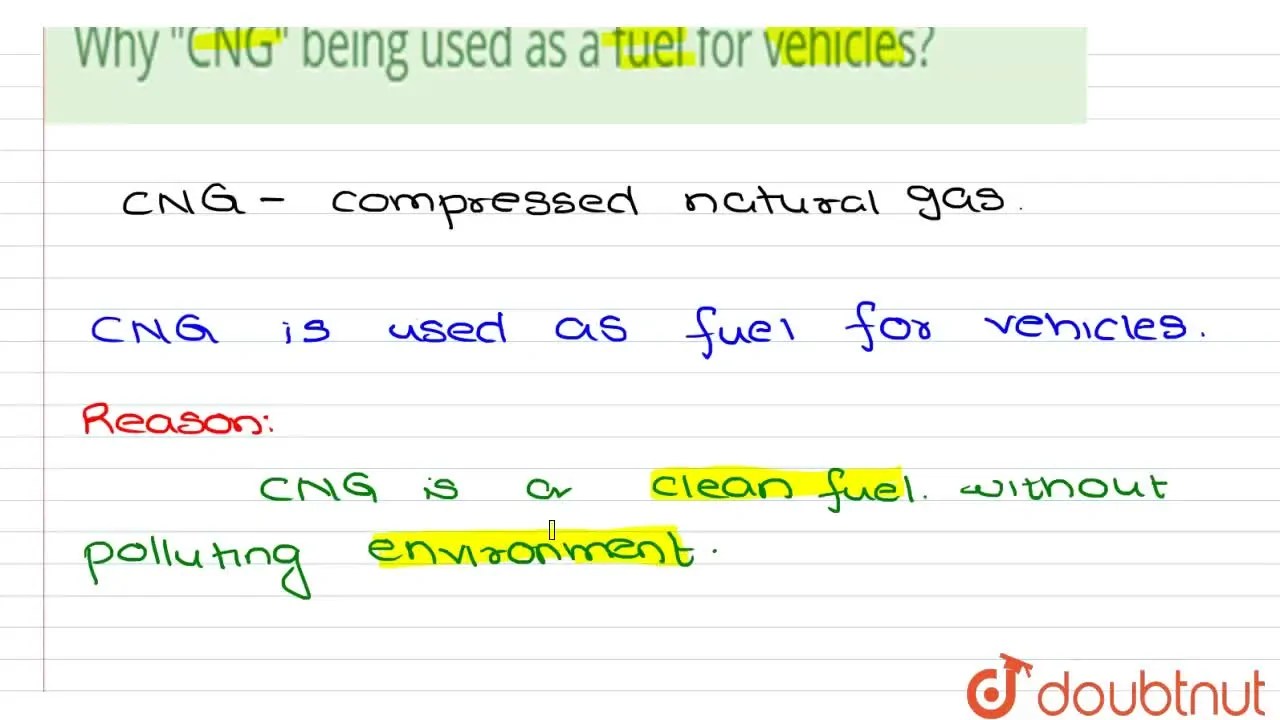 Why "CNG" being used as a fuel for vehicles?
CNG - compressed natural gas.
CNG is used as fuel for vehicles.
Reason:
CNG is a clean fuel. without
polluting environment.
doubtnut